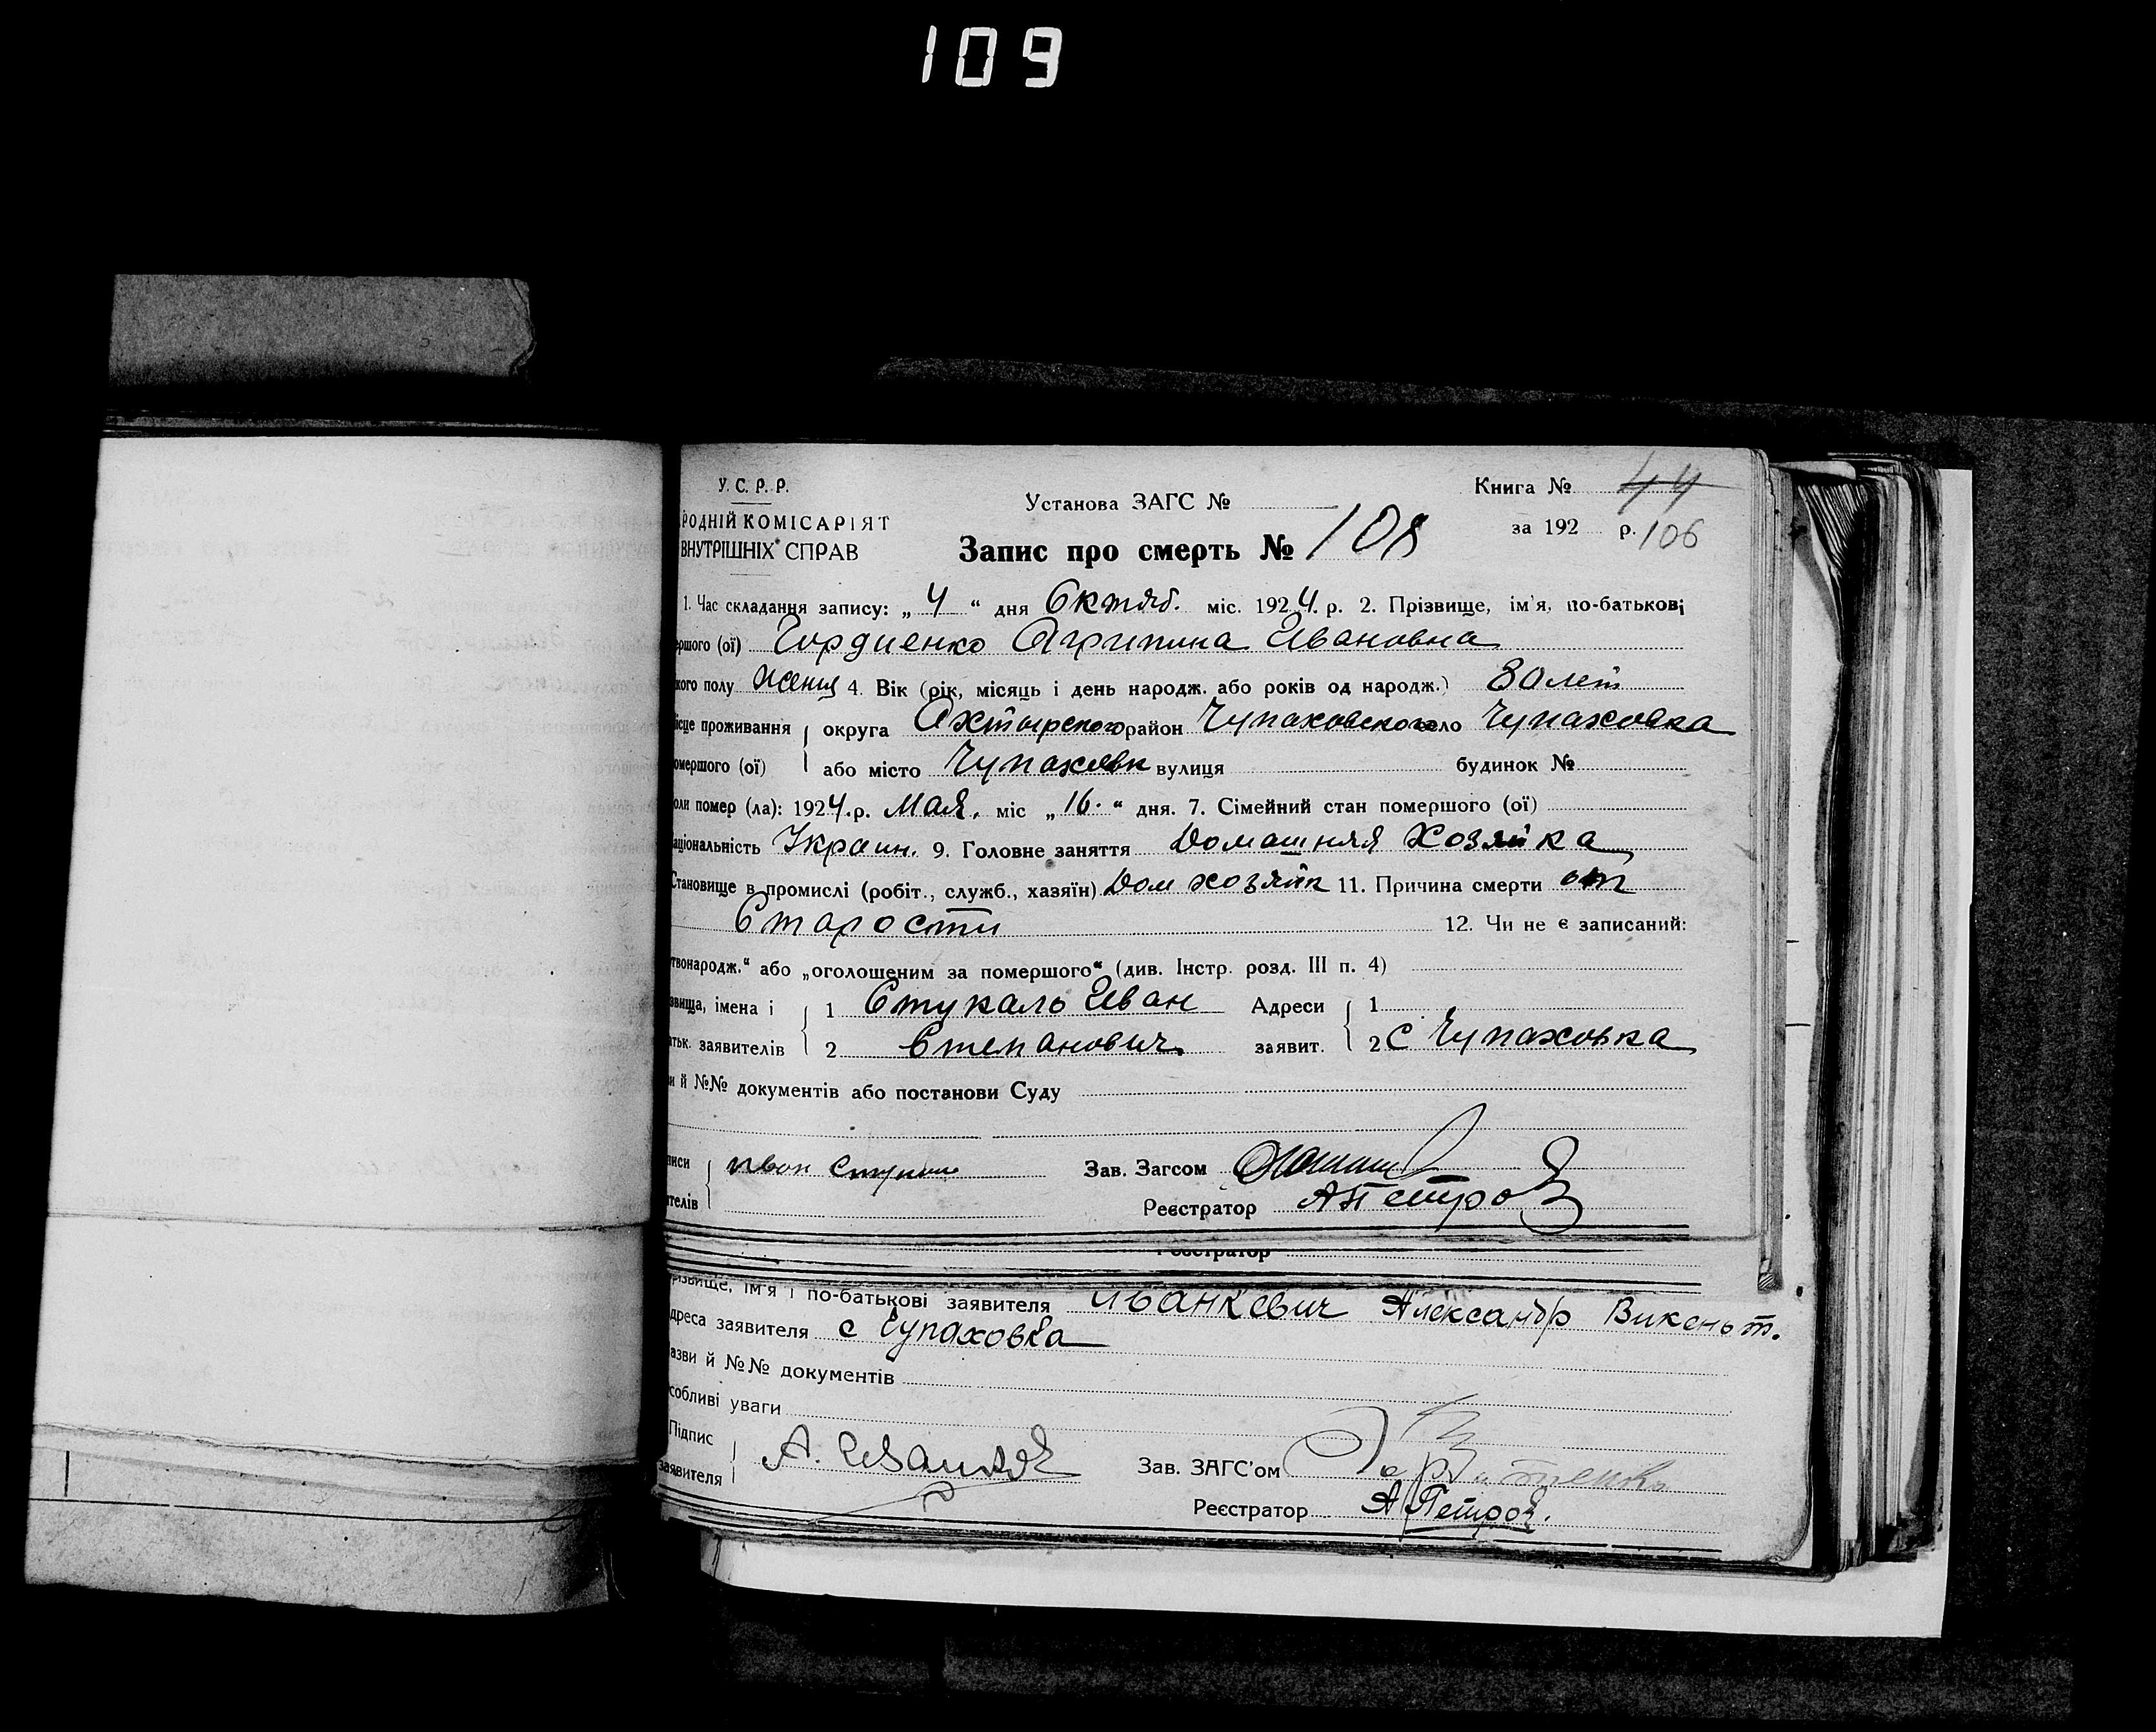 109
У. С. Р. Р.
РОДНІЙ КОМІСАРІЯТ
ВНУТРІШНІХ СПРАВ
Установа ЗАГС №
Книга № 44
за 192 р. 106
Запис про смерть № 108
1. Час складання запису: „ 4 “ дня Октяб. міс. 1924. р. 2. Прізвище, ім'я, по-батькові
ершого (ої) Гордиенко Агрипина Ивановна
кого полу Женщ 4. Вік (рік, місяць і день народж. або років од народж.) 80 лет
ісце проживання округа Ахтырского район Чупаховского ло Чупаховка
омершого (ої) або місто Чупаховк вулиця будинок №
оли помер (ла): 1924. р. Мая. міс „ 16. “ дня. 7. Сімейний стан помершого (ої)
аціональність Украин. 9. Головне заняття Домашняя Хозяйка
Становище в промислі (робіт., служб., хазяїн) Дом хозяйк 11. Причина смерти от
Старости 12. Чи не є записаний:
твонародж.“ або „оголошеним за помершого“ (див. Інстр. розд. III п. 4)
звища, імена і 1 Стукало Иван Адреси 1
атьк. заявителів 2 Степанович. заявит. 2 с Чупаховка
и й №№ документів або постанови Суду
иси Иван Зав. Загсом
телів Реєстратор АПетров
Реєстратор
різвище, ім'я і по-батькові заявителя Иванкевич Александр Викеньт.
дреса заявителя с Чупаховка
азви й №№ документів
собливі уваги
Підпис
заявителя А. Зав. ЗАГС'ом
Реєстратор А Петров.